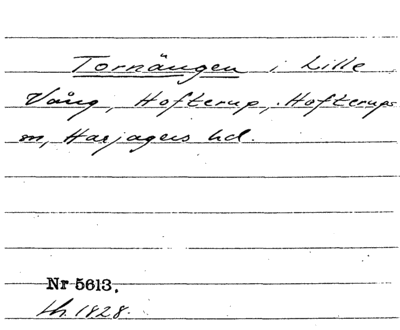 Tornängen i Lille
Vång, Hofterup, Hofterups
sn, Harjagers hd.
Nr 5613.
Lh. 1828.